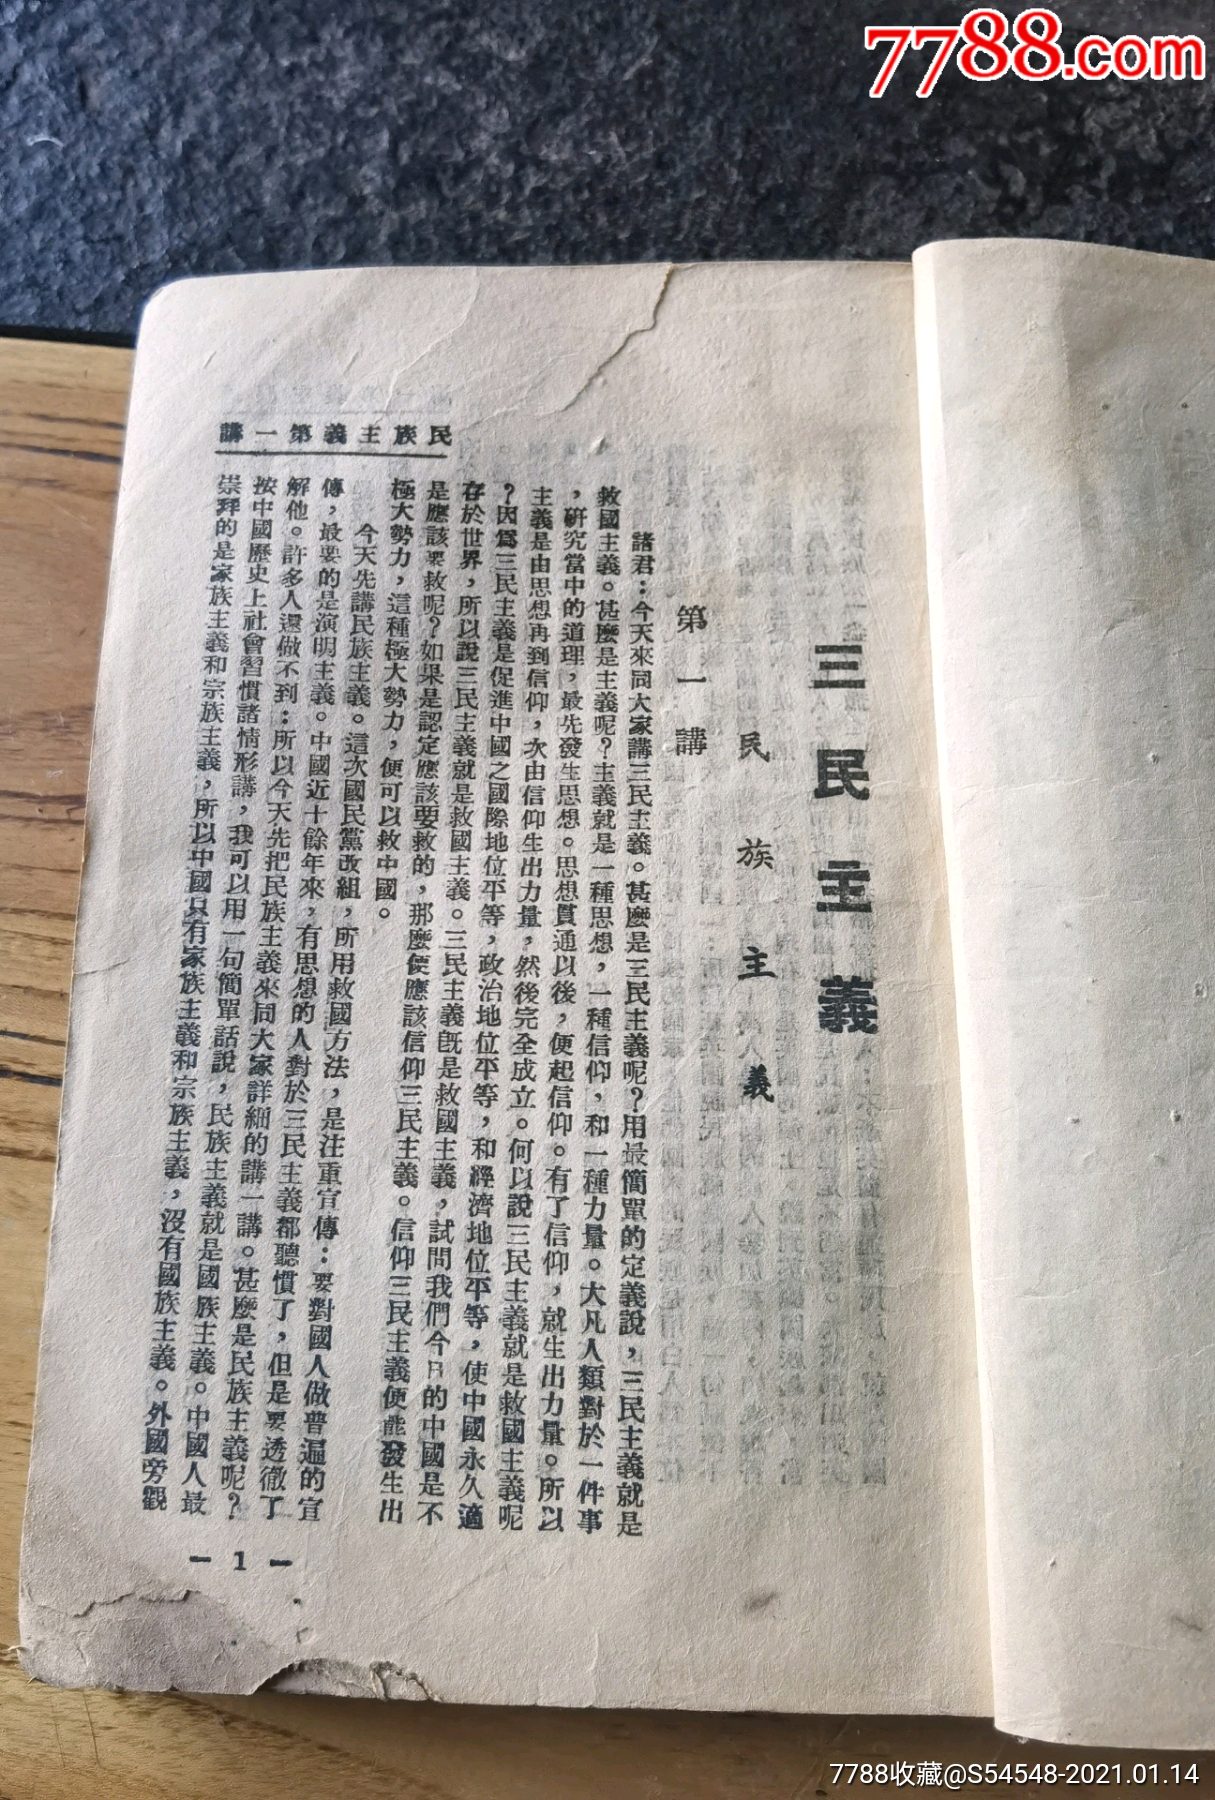 7788.com
民族主義第一講
三民主義
民族主義
第一講
諸君：今天來同大家講三民主義。甚麼是三民主義呢？用最簡單的定義說，三民主義就是
救國主義。甚麼是主義呢？主義就是一種思想，一種信仰，和一種力量。大凡人類對於一件事
，研究當中的道理，最先發生思想。思想貫通以後，便起信仰。有了信仰，就生出力量。所以
主義是由思想再到信仰，次由信仰生出力量，然後完全成立。何以說三民主義就是救國主義呢
？因爲三民主義是促進中國之國際地位平等，政治地位平等，和經濟地位平等，使中國永久適
存於世界，所以說三民主義就是救國主義。三民主義旣是救國主義，試問我們今日的中國是不
是應該要救呢？如果是認定應該要救的，那麼便應該信仰三民主義。信仰三民主義便能發生出
極大勢力，這種極大勢力，便可以救中國。
今天先講民族主義。這次國民黨改組，所用救國方法，是注重宣傳：要對國人做普遍的宣
傳，最要的是演明主義。中國近十餘年來，有思想的人對於三民主義都聽慣了，但是要透徹了
解他。許多人還做不到：所以今天先把民族主義來同大家詳細的講一講。甚麼是民族主義呢？
按中國歷史上社會習慣諸情形講，我可以用一句簡單話說，民族主義就是國族主義。中國人最
崇拜的是家族主義和宗族主義，所以中國只有家族主義和宗族主義，沒有國族主義。外國旁觀
— 1 —
7788收藏@S54548-2021.01.14